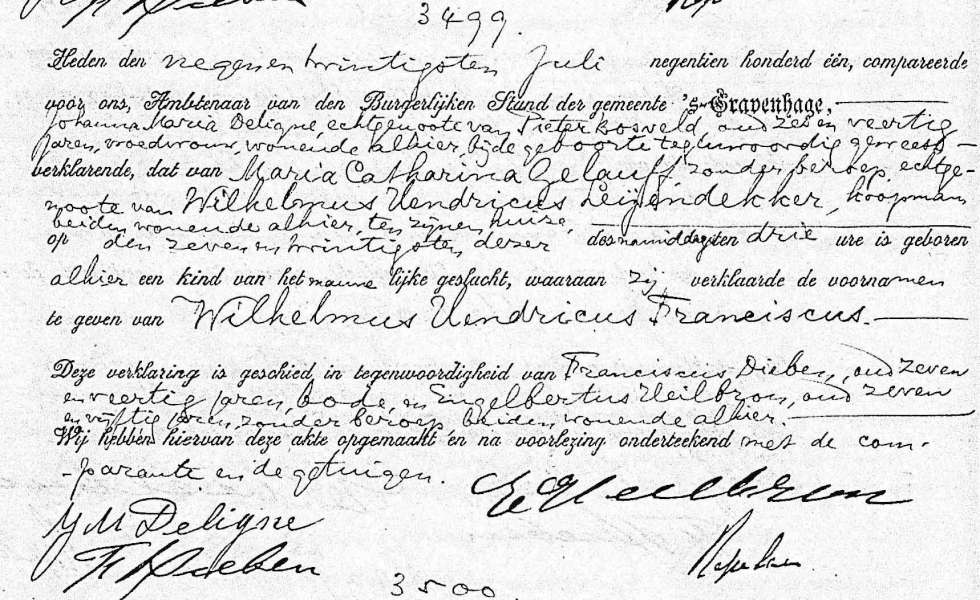 3499.
Heden den negenen twintigsten Juli negentien honderd één, compareerde
voor ons, Ambtenaar van den Burgerlijken Stand der gemeente 's-Gravenhage,
Johanna Maria Deligne, echtgenoote van Pieter Bosveld, oud zes en veertig
jaren, vroedvrouw, wonende alhier, bij de geboorte tegenwoordig geweest
verklarende, dat van Maria Catharina Gelauff, zonder beroep, echtge-
noote van Wilhelmus Hendricus Leijendekker, koopman
beiden wonende alhier, ten zijnen huize,
op den zeven en twintigsten dezer des namiddags ten drie ure is geboren
alhier een kind van het mannelijke geslacht, waaraan zij verklaarde de voornamen
te geven van Wilhelmus Hendricus Franciscus.
Deze verklaring is geschied in tegenwoordigheid van Franciscus Dieben, oud zeven
en veertig jaren, bode, en Engelbertus Heilbron, oud zeven
en vijftig jaren, zonder beroep, beiden wonende alhier.
Wij hebben hiervan deze akte opgemaakt en na voorlezing onderteekend met de com-
parante en de getuigen.
JM Deligne
F Dieben
3500